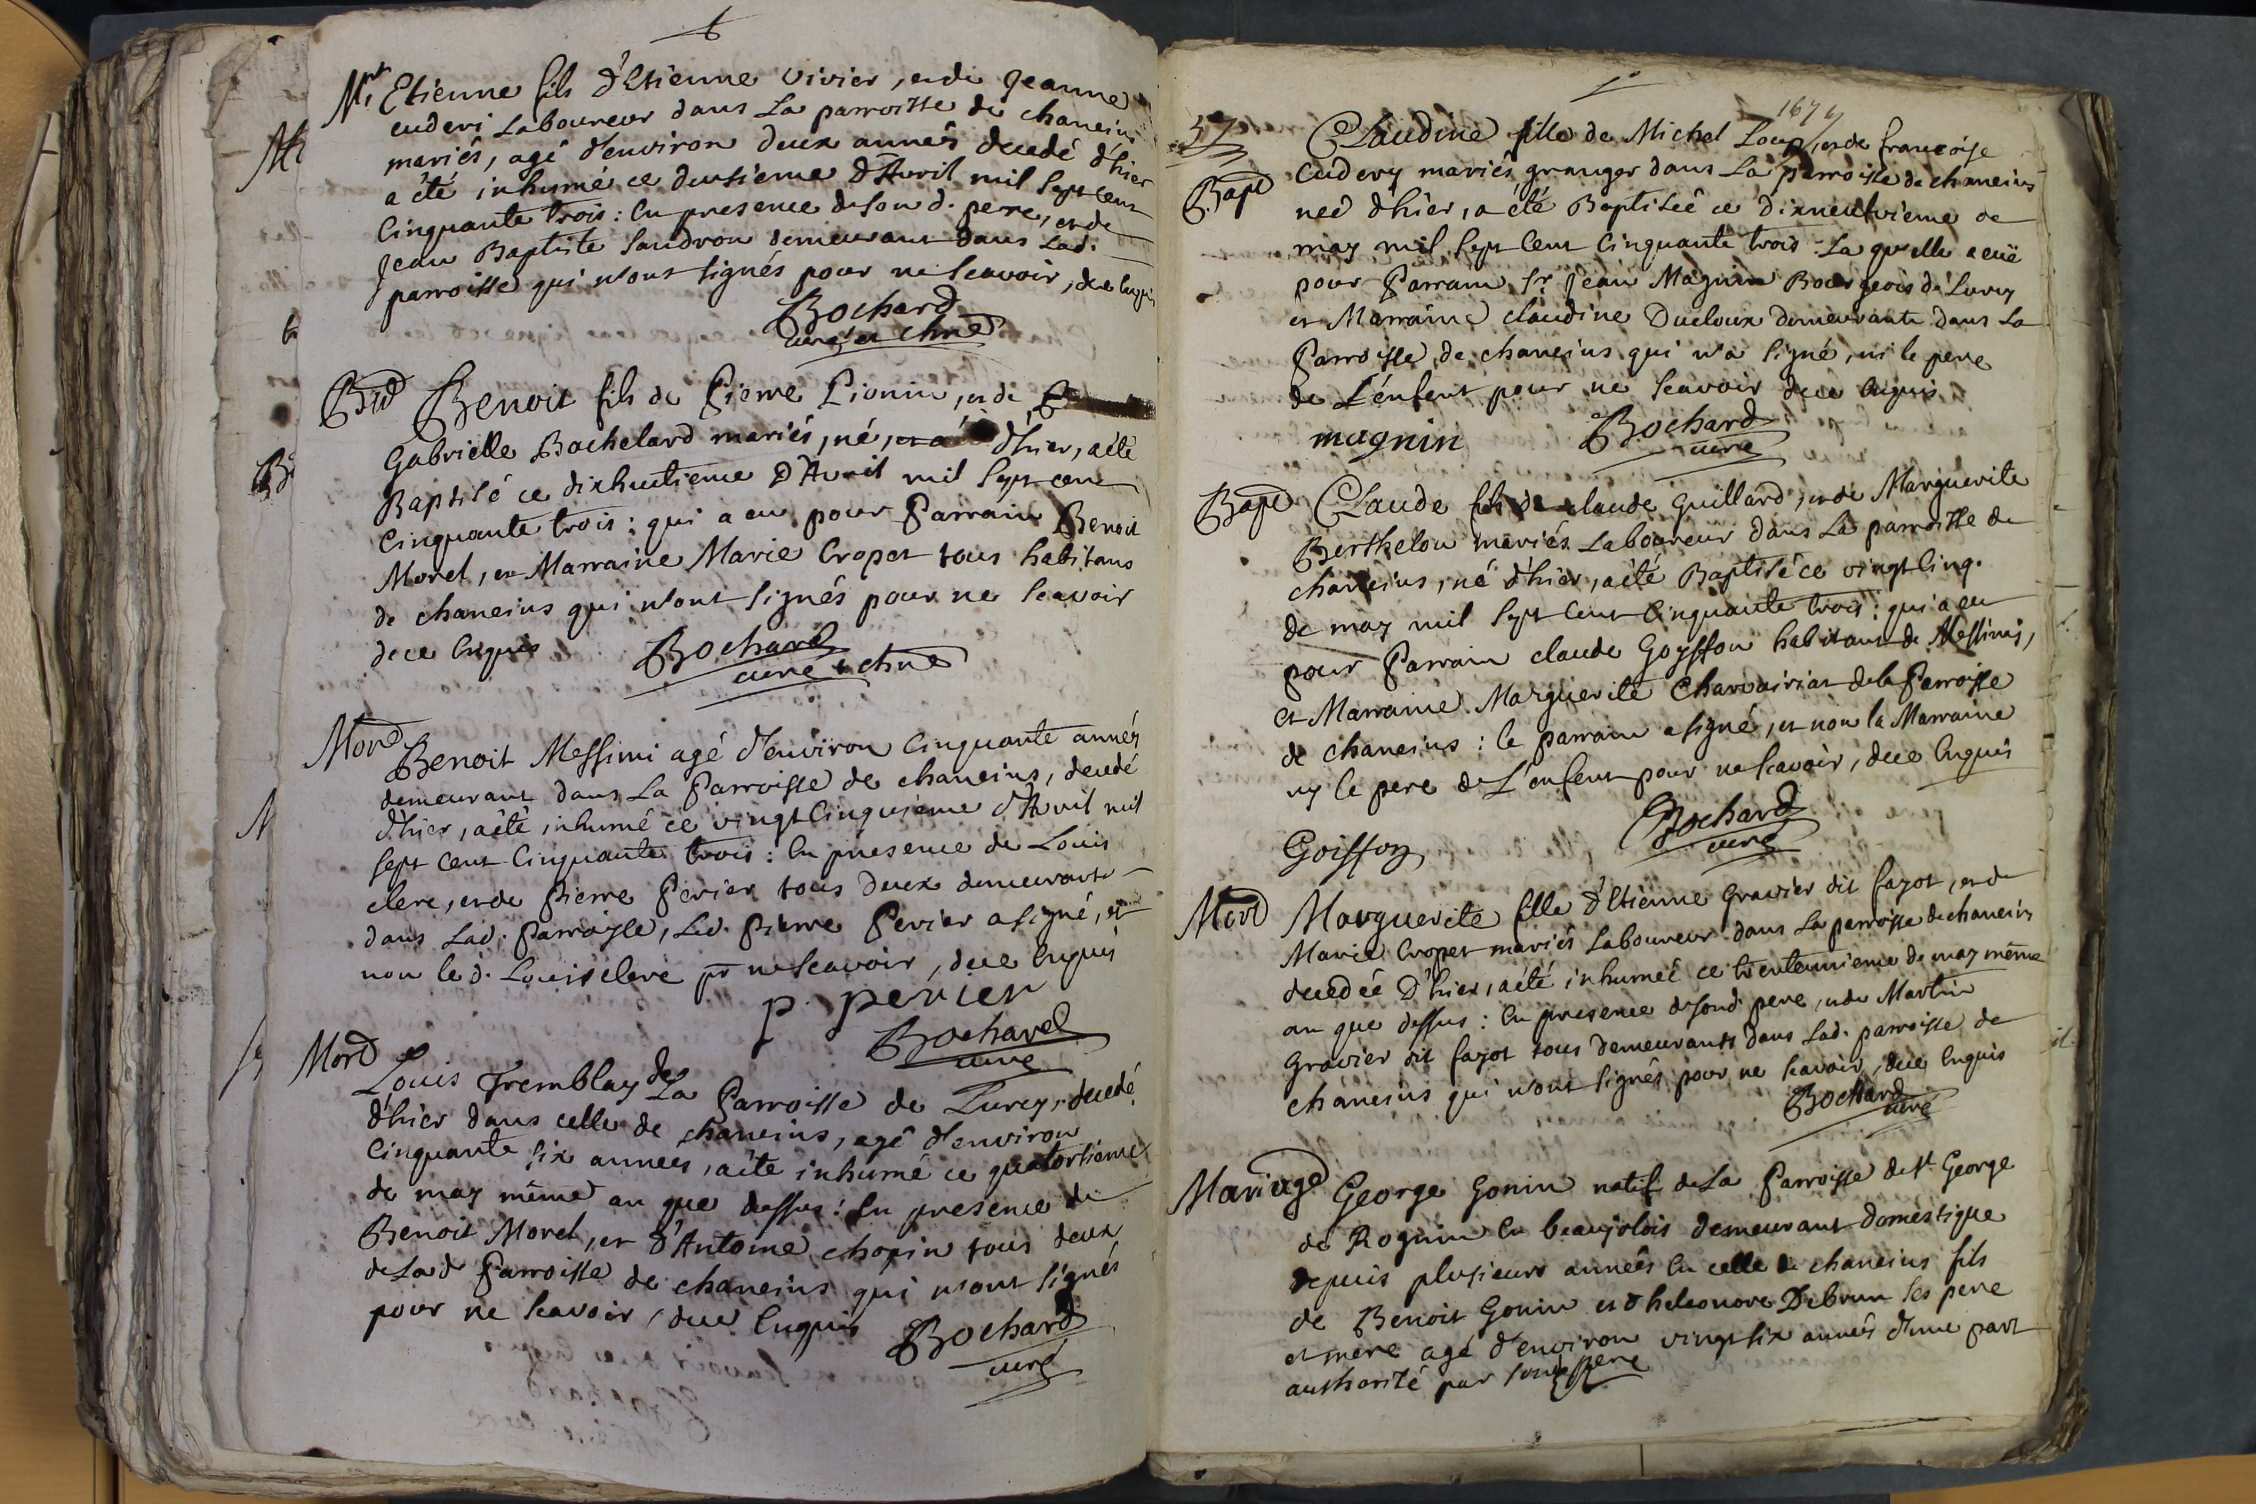 Mrt Etienne fils d'Etienne vivier, et de Jeanne
cuderi Laboureur dans La parroisse de chaneins
mariés, agé d'environ deux années decedé d'hier
a été inhumé ce deusieme d'Avril mil sept cent
Cinquante trois: En presence de son d. pere, et de
Jean Baptiste Sandron demeurant dans Lad.
parroisse qui n'ont signés pour ne scavoir, de ce Enquis
Bochard
curé et chne
Bat Benoit fils de Pierre Pionin, et de
Gabrielle Bachelard mariés, né, d'hier, a été
Baptisé ce dixhuitieme D'Avril mil sept cent
Cinquante trois: qui a eu pour Parrain Benoit
Morel, et Marraine Marie Cropet tous habitans
de chaneins qui n'ont signés pour ne scavoir
de ce Enquis
Bochard
curé & chne
Mort Benoit Messimi agé d'environ Cinquante années
demeurant dans La Parroisse de chaneins, decedé
d'hier, a été inhumé ce vingt Cinquieme d'Avril mil
sept cent Cinquante trois: En presence de Louis
clere, et de Pierre Perier tous deux demeurants
dans Lad. Parroisse, Led. Pierre Perier a signé, et
non le d. Louis clere pr ne scavoir, de ce Enquis
p. perier
Bochard
curé
Mort Louis Tremblay de La Parroisse de Lurcy, decedé
d'hier dans celle de chaneins, agé d'environ
Cinquante six années, a été inhumé ce quatortieme
de may même an que dessus: En presence de
Benoit Morel, et d'Antoine chopin tous deux
de Lad. Parroisse de chaneins qui n'ont signés
pour ne scavoir, de ce Enquis
Bochard
curé
57
Bapt Claudine fille de Michel Loup, et de francoise
Cudery mariés granger dans La parroisse de chaneins
neé d'hier, a été Baptisée ce dixneufvieme de
may mil sept Cent Cinquante trois: La quelle a eüe
pour Parrain, Sr. Jean Magnin Bourgeois de Lurcy
et Marraine claudine Ducloux demeurante dans La
Parroisse de chaneins qui n'a signé, ni le pere
de L'enfent pour ne scavoir de ce Enquis
magnin
Bochard
curé
Bapt Claude fils de claude Guillard, et de Marguerite
Berthelon mariés Laboureur dans La parroisse de
chaneins, né d'hier, a été Baptisé ce vingt Cinq.
de may mil sept Cent Cinquante trois: qui a eu
pour Parrain claude Goyffon habitant de Messimi,
et Marraine Marguerite Charvairiat de la Parroisse
de chaneins: le parrain a signé, et non la Marraine
ny le pere de L'enfent pour ne scavoir, de ce Enquis
Goiffon
Bochard
curé
Mort Marguerite fille d'Etienne Gravier dit fayot, et de
Marie Cropet mariés Laboureur dans La parroisse de chaneins
decedée D'hier, a été inhumeé ce trenteunieme de may même
an que dessus: En presence de son d. pere, et de Martin
Gravier dit fayot tous demeurants dans Lad. parroisse de
chaneins qui n'ont signés pour ne scavoir, de ce Enquis
Bochard
curé
Mariage George Gonin natif de La Parroisse de St George
de Rognin En beaujolois demeurant domestique
depuis plusieurs années En celle de chaneins fils
de Benoit Gonin et d'heleonore Debrun ses pere
et mere agé d'environ vingt six années d'une part
authorité par sond. pere